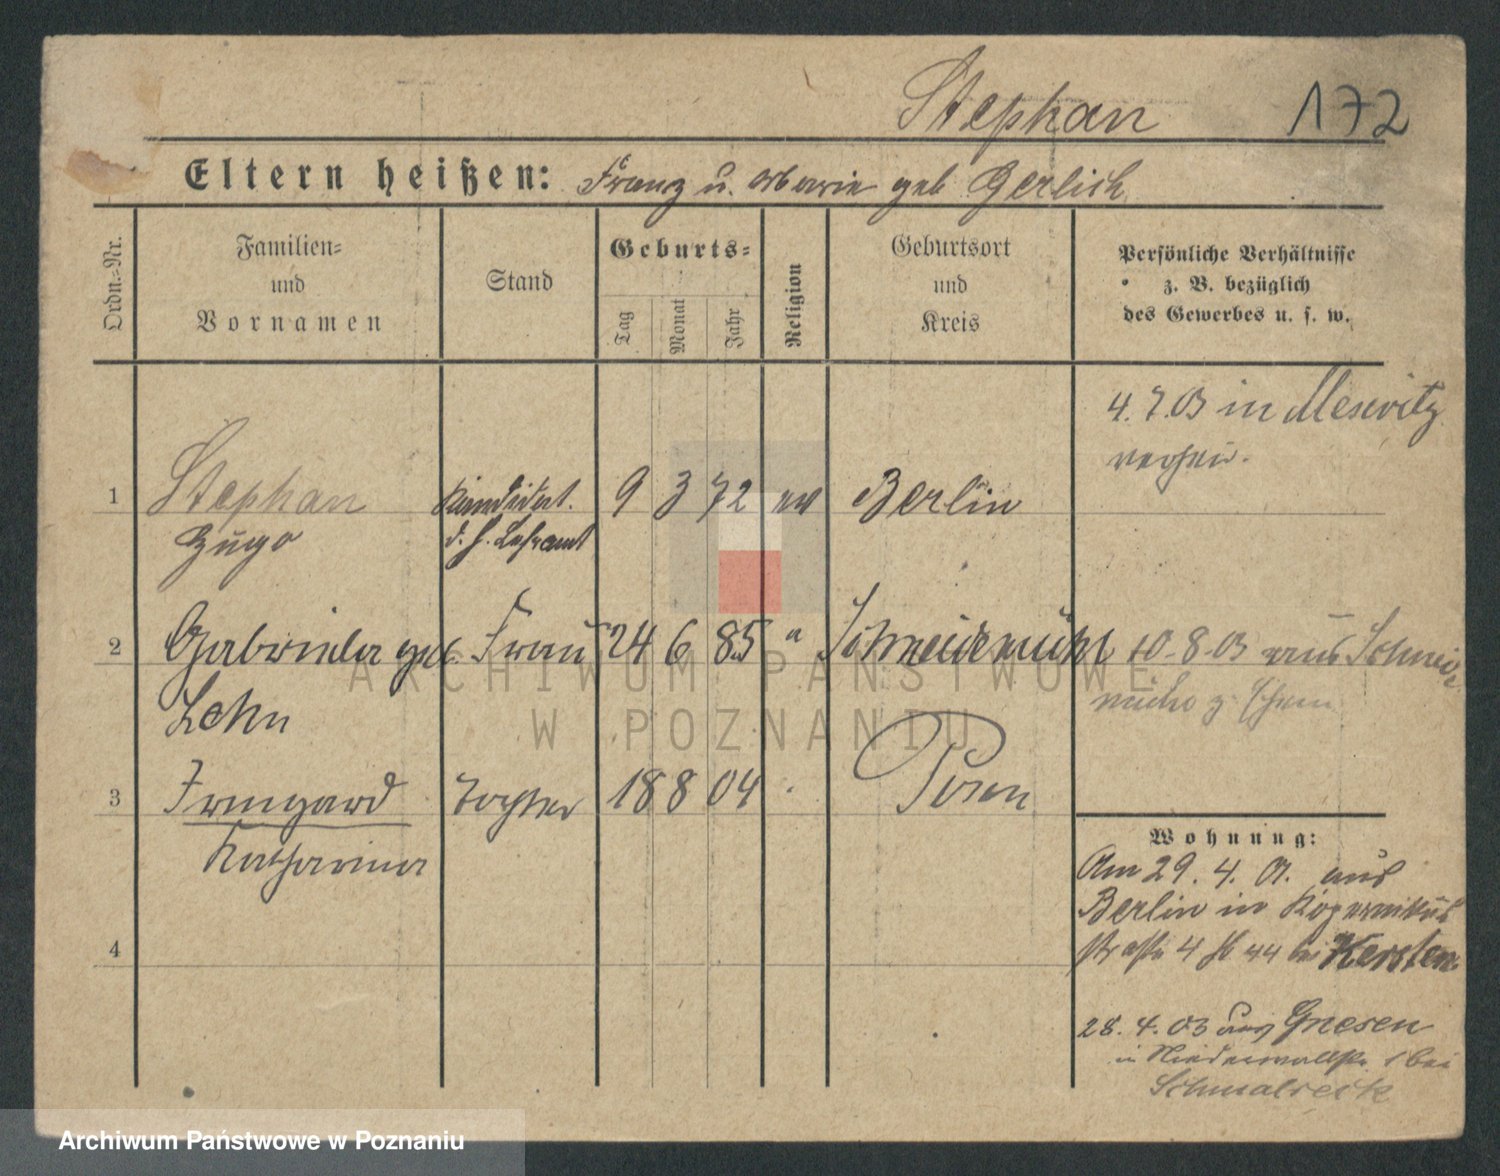 Stephan 172
Eltern heißen: Franz u. Marie geb Gerlich
Ordn.=Nr.
Familien=
und
Vornamen
Stand
Geburts=
Tag
Monat
Jahr
Religion
Geburtsort
und
Kreis
Persönliche Verhältnisse
z. B. bezüglich
des Gewerbes u. s. w.
4. 7. 03 in Meseritz
verheir.
1 Stephan Kandidat. 9 3 72 ev Berlin
Hugo d. h. Lehramt
2 Gabriela geb. Frau 24 6 85 " Schneidemühl 10. 8. 03 aus Schneide
Lehn
mühl z. Ehem
3 Irmgard Tochter 18 8 04 Posen
Katharina
4
Wohnung:
Am 29. 4. 01. aus
Berlin in Kopernikus
straße 4 bei Kersten
28. 4. 03 aus Gnesen
in Niederwallstr. 1 bei
Schmalreck
ARCHIWUM PAŃSTWOWE
W POZNANIU
Archiwum Państwowe w Poznaniu